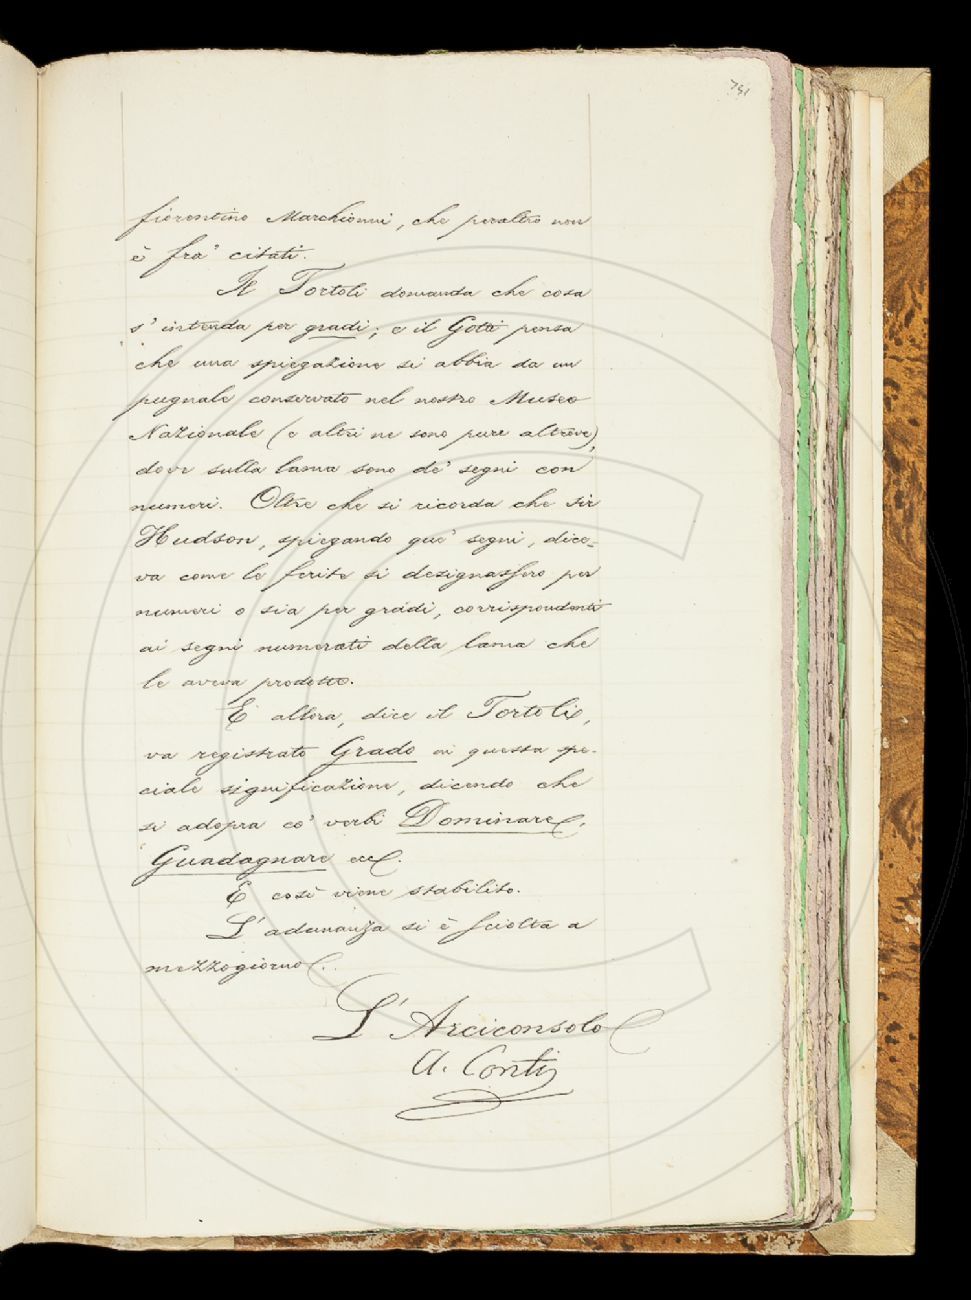 751
fiorentino Marchionni, che peraltro non
è fra' citati.
Il Tortoli domanda che cosa
s'intenda per gradi; e il Gotti pensa
che una spiegazione si abbia da un
pugnale conservato nel nostro Museo
Nazionale (e altri ne sono pure altrove),
dove sulla lama sono de' segni con
numeri. Oltre che si ricorda che sir
Hudson, spiegando que' segni, dice=
va come le ferite si designassero per
numeri o sia per gradi, corrispondenti
ai segni numerati della lama che
le aveva prodotte.
E allora, dice il Tortoli,
va registrato Grado in questa spe-
ciale significazione, dicendo che
si adopra co' verbi Dominare,
Guadagnare ecc.
E così viene stabilito.
L'adunanza si è sciolta a
mezzogiorno.
L'Arciconsolo
A. Conti